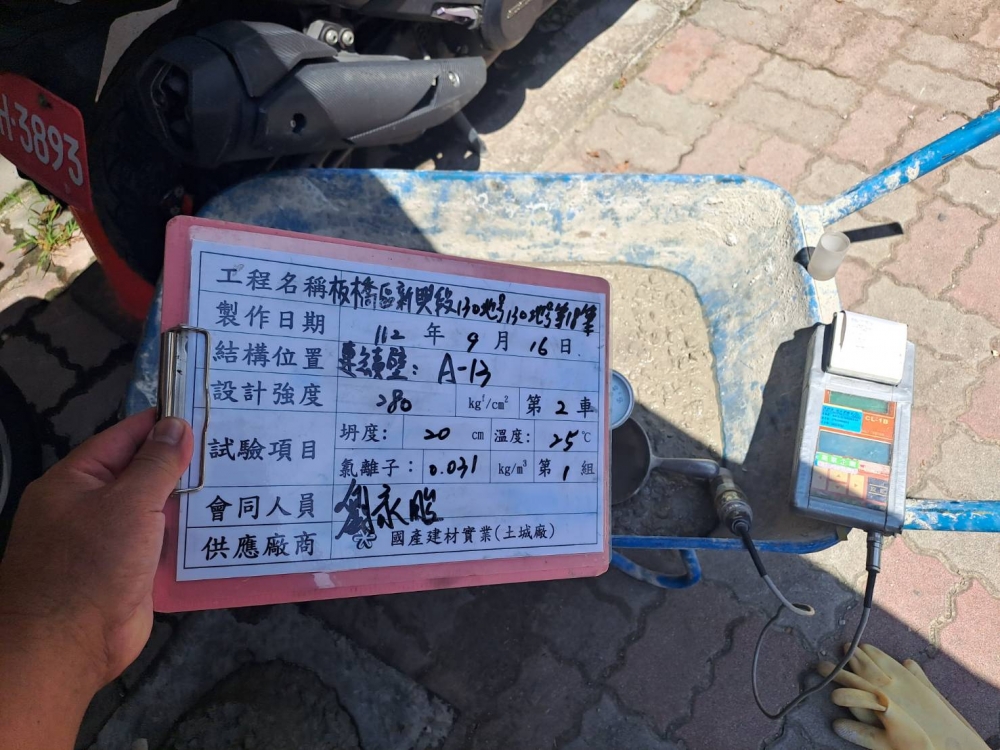 H-3893
工程名稱 板橋區新興段130地号130地号等18筆
製作日期 112 年 9 月 16 日
結構位置 連續壁: A-13
設計強度 280 kgf/cm² 第 2 車
試驗項目 坍度: 20 cm 溫度: 25 ℃
氯離子: 0.031 kg/m³ 第 1 組
會同人員 劉永
供應廠商 國產建材實業(土城廠)
CL-1B